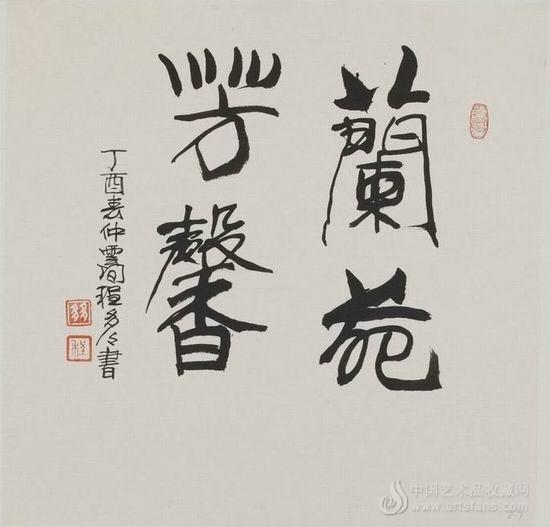 蘭苑
芳馨
丁酉春仲霅間程多多書
中国艺术品收藏网
www.artsfans.com